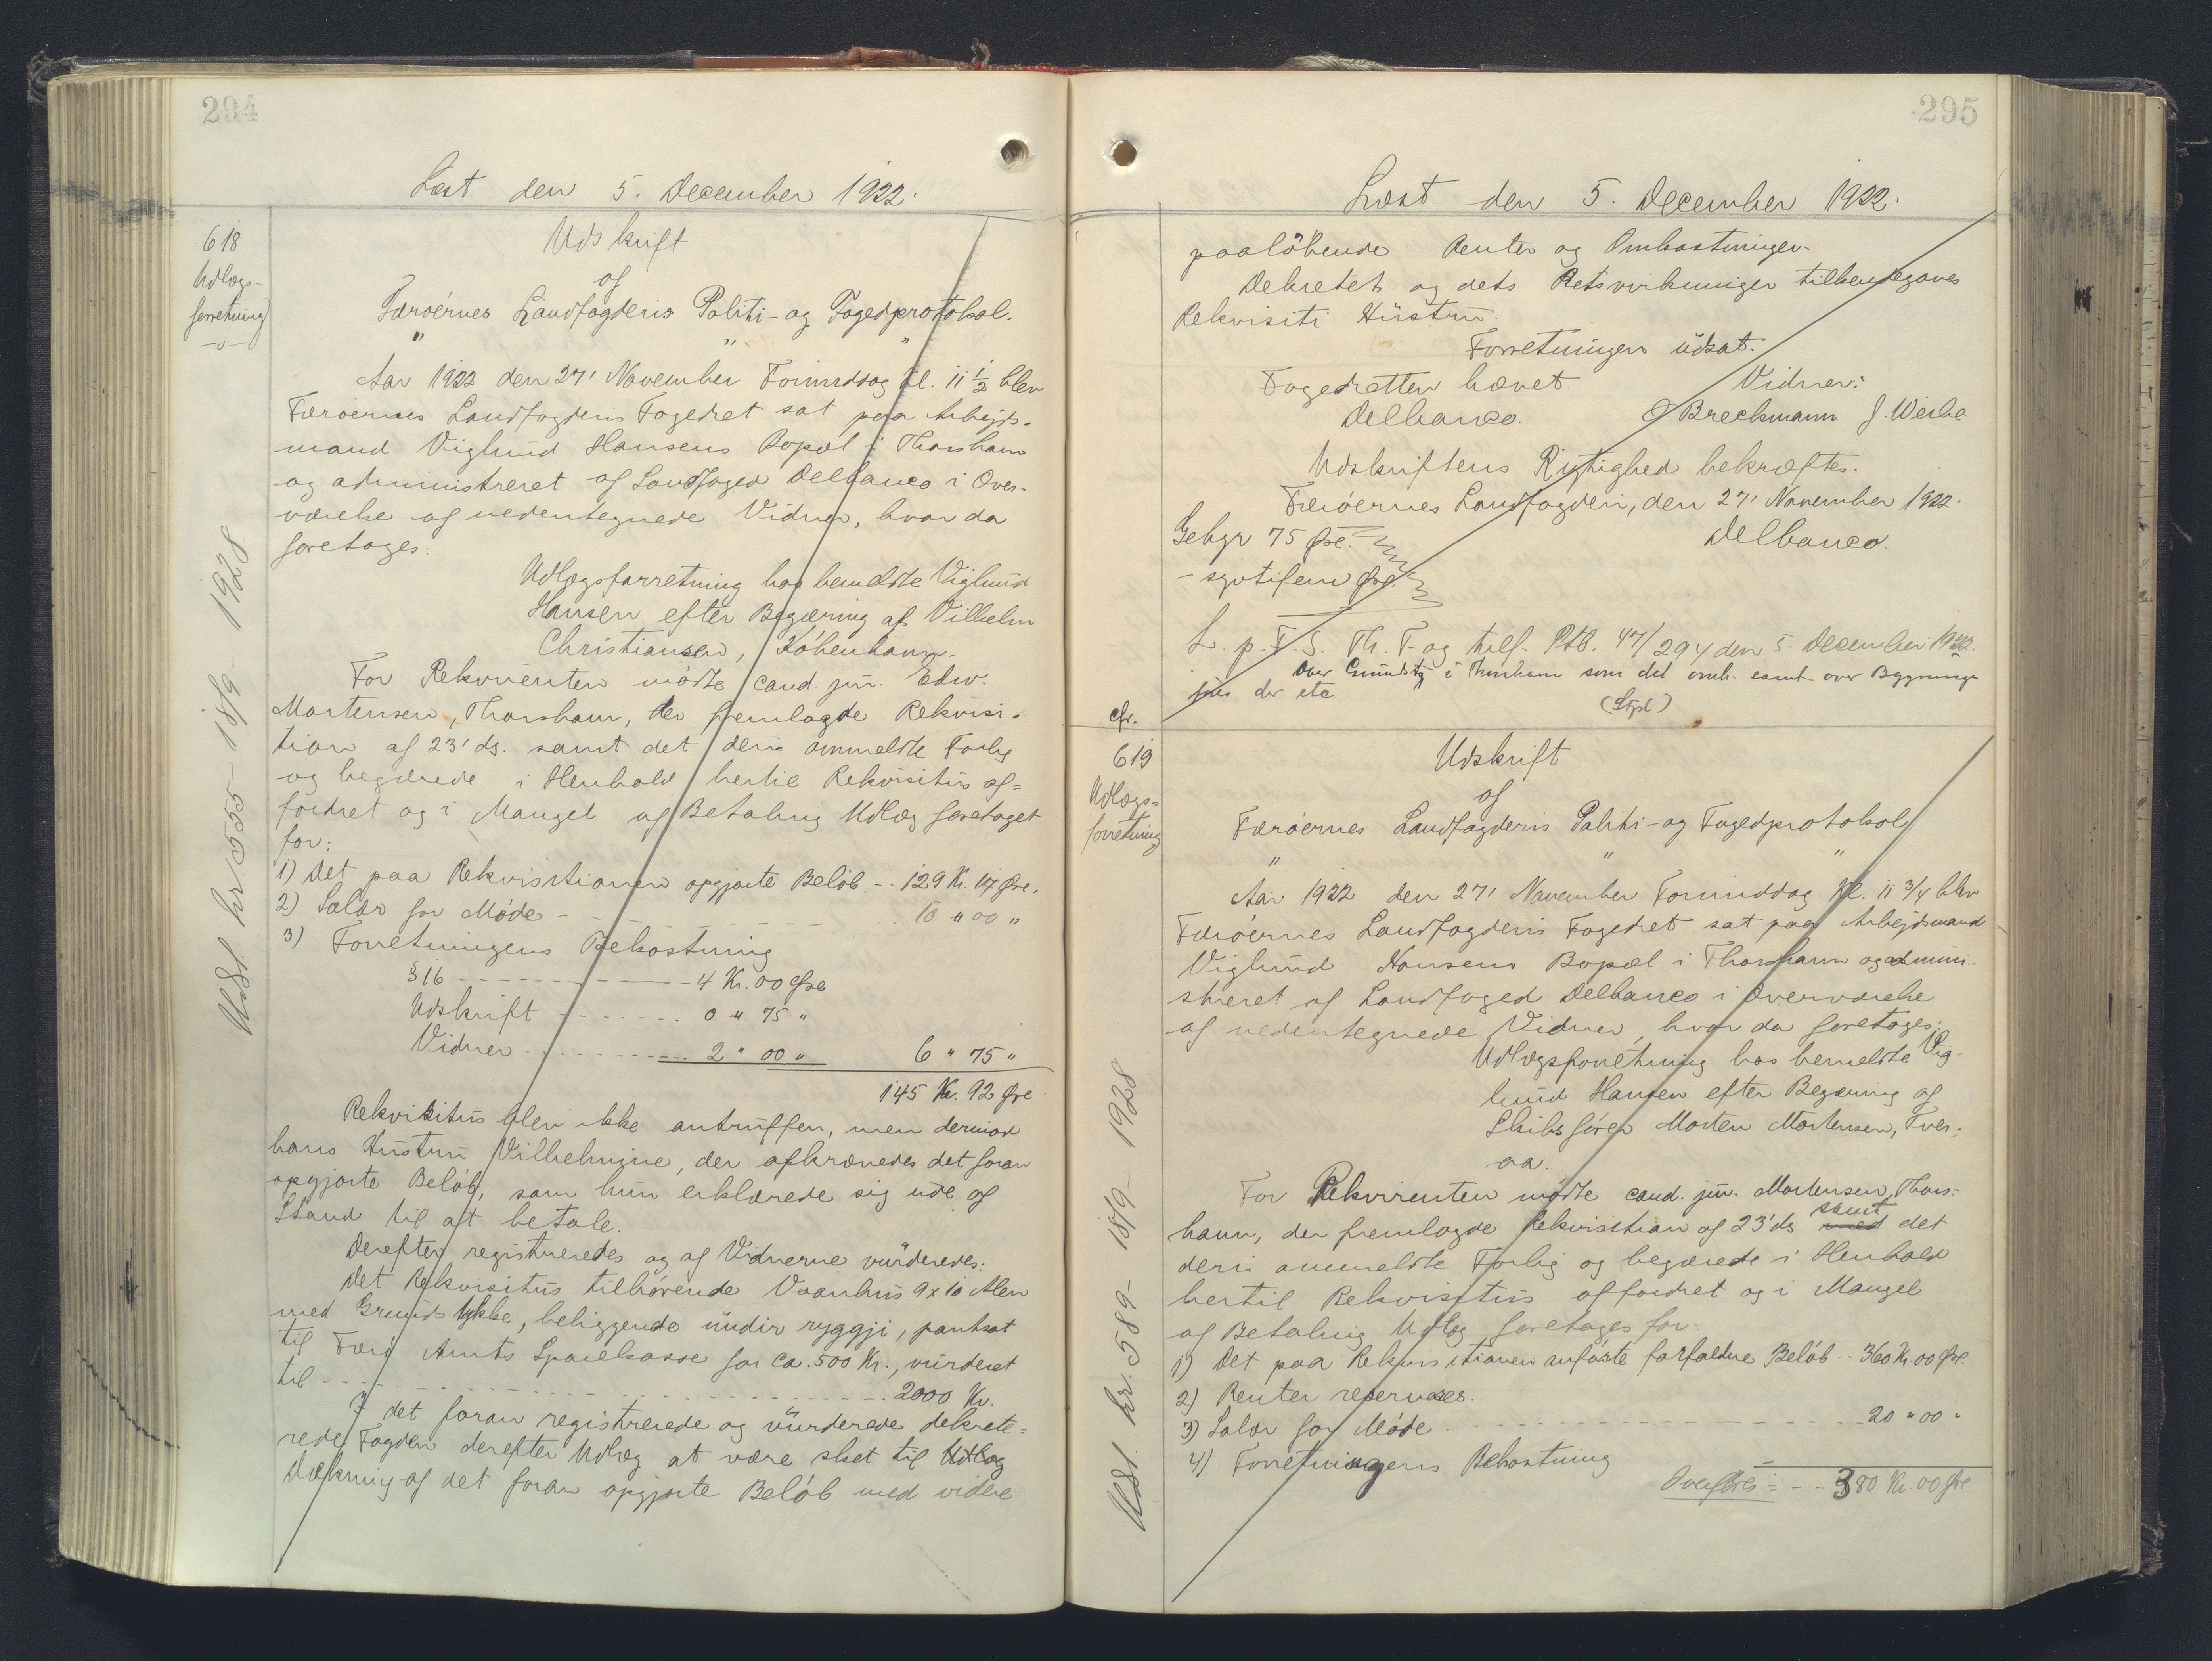 294
Læst den 5. December 1922.
618
Udlægs-
forretning
Udskrift
af
Færøernes Landfogderis Politi- og Fogedprotokol.
" " "
Aar 1922 den 27' November Formiddag Kl. 11 1/2 blev
Færøernes Landfogderis Fogedret sat paa Arbejds-
mand Viglund Hansens Bopæl i Thorshavn
og administreret af Landfoged Delbanco i Over-
værelse af nedentegnede Vidner, hvor da
foretoges:
Udlægsforretning hos bemeldte Viglund
Hansen efter Begæring af Vilhelm
Christiansen, København.
For Rekvirenten mødte cand. jur. Edw.
Mortensen, Thorshavn, der fremlagde Rekvisi-
tion af 23' ds. samt det deri ommeldte Forlig
og begærede i Henhold hertil Rekvisitus af-
fordret og i Mangel af Betaling Udlæg foretaget
for:
1) Det paa Rekvisitionen opgjorte Beløb -- 129 Kr. 17 Øre.
2) Salær for Møde - - - - 10 " 00 "
3) Forretningens Bekostning
§16 - - - - 4 Kr. 00 Øre
Udskrift - - - - 0 " 75 "
Vidner - - - - 2 " 00 " 6 " 75 "
145 Kr. 92 Øre
Rekvisitus blev ikke antruffen, men derimod
hans Hustru Vilhelmine, der afkrævedes det foran
opgjorte Beløb, som hun erklærede sig ude af
Stand til at betale.
Derefter registreredes og af Vidnerne vurderedes:
Det Rekvisitus tilhørende Vaanhus 9 x 10 Alen
med Grundstykke, beliggende undir ryggji, pantsat
til Færø Amts Sparekasse for ca. 500 Kr., vurderet
til - - - - 2000 Kr.
I det foran registrerede og vurderede dekrete-
rede Fogden derefter Udlæg at være sket til Udlæg
Dækning af det foran opgjorte Beløb med videre
Udsl hr. 555 - 18/9 - 1928
295
Læst den 5. December 1922.
paaløbende Renter og Omkostninger.
Dekretet og dets Retsvirkninger tilkendegaves
Rekvisiti Hustru.
Forretningen udsat.
Fogedretten hævet. Vidner:
Delbanco. Breckmann J. Weihe
Udskriftens Rigtighed bekræftes.
Færøernes Landfogderi, den 27' November 1922.
Gebyr 75 Øre. Delbanco.
- syvtifem Øre.
L. p. F. S. Th. T. og tilf. Ptb. 47/294 den 5. December 1922.
over Grundst. i Thorshavn som det omh. samt over Bygninger
der etc
cfr.
619
Udlægs-
forretning
Udskrift
af
Færøernes Landfogderis Politi- og Fogedprotokol
" " "
Aar 1922 den 27' November Formiddag Kl. 11 3/4 blev
Færøernes Landfogderis Fogedret sat paa Arbejdsmand
Viglund Hansens Bopæl i Thorshavn og admini-
streret af Landfoged Delbanco i Overværelse
af nedentegnede Vidner, hvor da foretoges:
Udlægsforretning hos bemeldte Vig-
lund Hansen efter Begæring af
Skibsfører Morten Mortensen, Tver-
aa.
For Rekvirenten mødte cand. jur. Mortensen, Thors-
havn, der fremlagde Rekvisition af 23' ds. samt det
deri ommeldte Forlig og begærede i Henhold
hertil Rekvisitus affordret og i Mangel
af Betaling Udlæg foretages for:
1) Det paa Rekvisitionen anførte forfaldne Beløb -- 360 Kr. 00 Øre.
2) Renter reserveres.
3) Salær for Møde - - - - 20 " 00 "
4) Forretningens Bekostning
Overføres - - - 380 Kr. 00 Øre
Udsl. hr. 589 - 18/9 - 1928